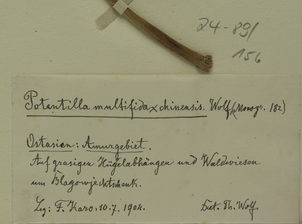 24-89/
156
Potentilla multifida x chinensis. Wolf (Monogr. 182)
Ostasien: Amurgebiet.
Auf grasigen Hügelabhängen und Waldwiesen
um Blagowjeschtschensk.
Leg: F. Karo, 10.7.1904. Det. Th. Wolf.